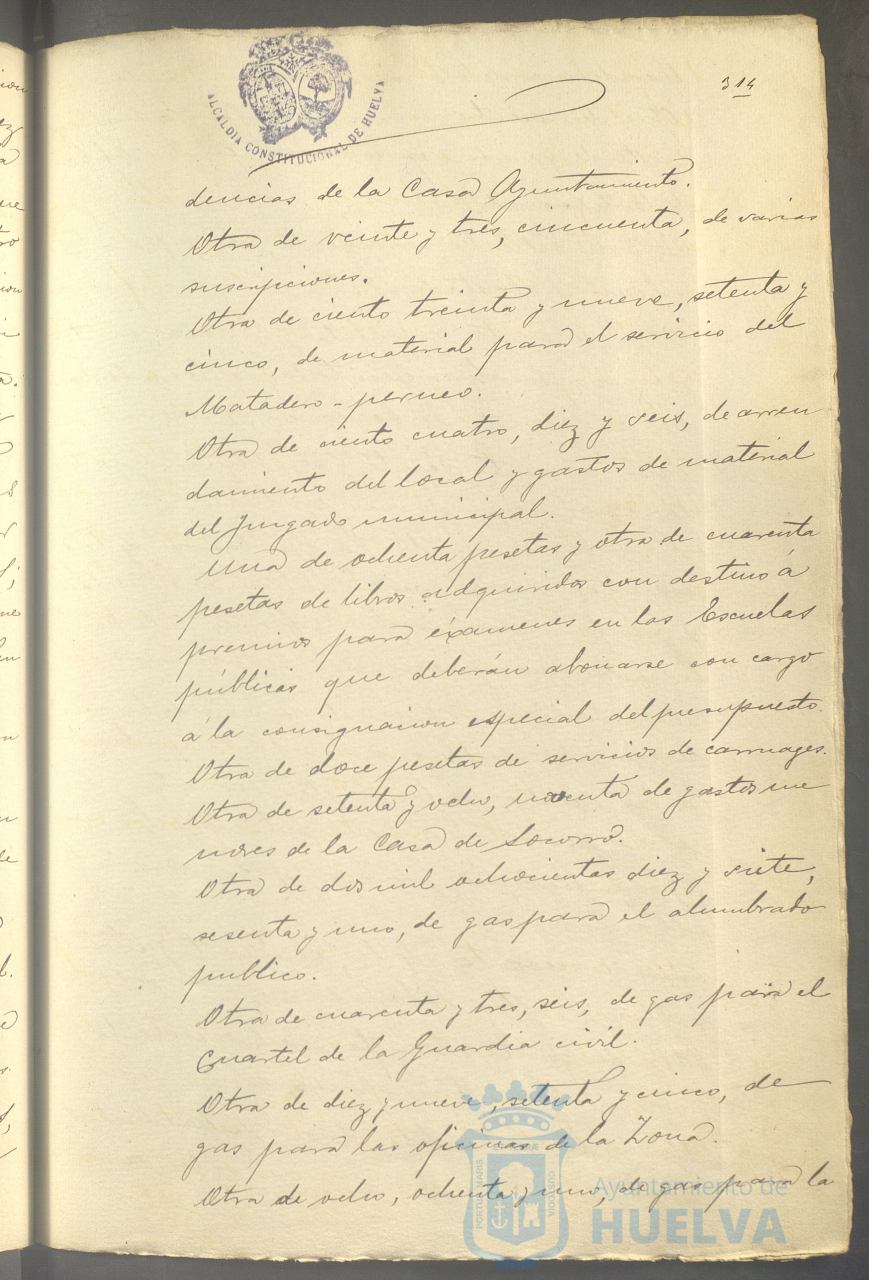 ALCALDIA CONSTITUCIONAL DE HUELVA
314
dencias de la Casa Ayuntamiento.
Otra de veinte y tres, cincuenta, de varias
suscripciones.
Otra de ciento treinta y nueve, setenta y
cinco, de material para el servicio del
Matadero-perneo.
Otra de ciento cuatro, diez y seis, de arren
damiento del local y gastos de material
del Juzgado municipal.
Una de ochenta pesetas y otra de cuarenta
pesetas de libros adquiridos con destino á
premios para éxamenes en las Escuelas
públicas que deberán abonarse con cargo
á la consignacion especial del presupuesto.
Otra de doce pesetas de servicios de carruages.
Otra de setenta y ocho, noventa de gastos me
nores de la Casa de Socorro.
Otra de dos mil ochocientas diez y siete,
sesenta y uno, de gas para el alumbrado
publico.
Otra de cuarenta y tres, seis, de gas para el
Cuartel de la Guardia civil.
Otra de diez y nueve, setenta y cinco, de
gas para las oficinas de la Zona.
Otra de ocho, ochenta y uno, de gas para la
Ayuntamiento de
HUELVA